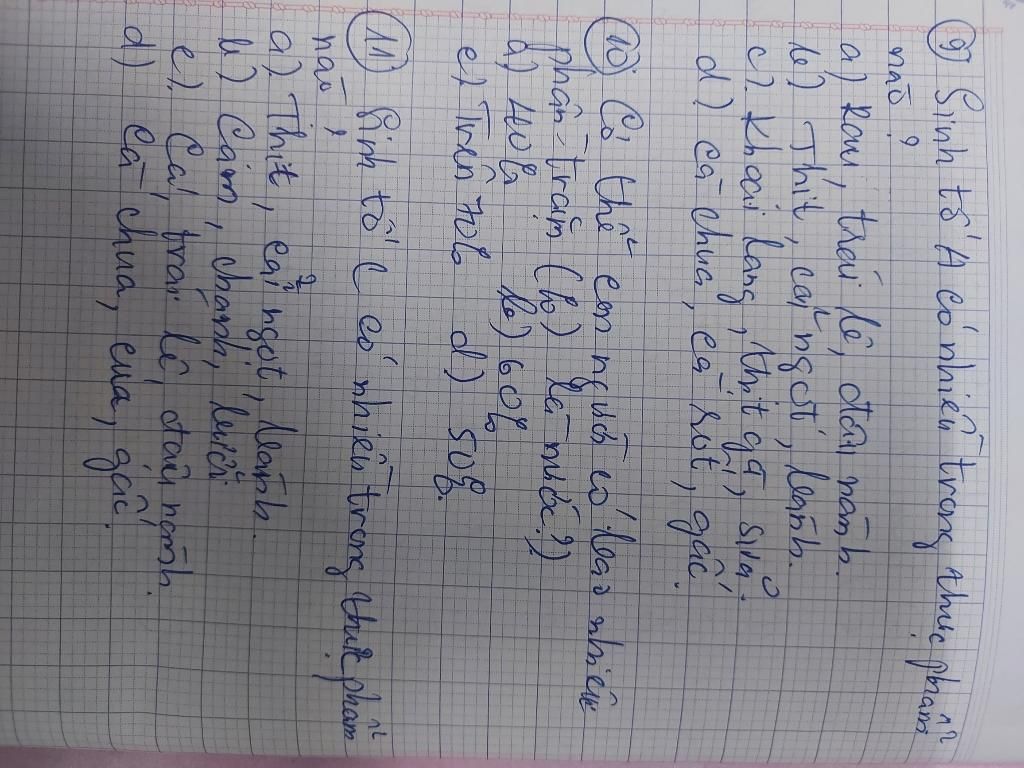 9) Sinh tố A có nhiều trong thực phẩm
nào?
a) Rau, trái lê, đậu nành.
b) Thịt, cải ngọt, bánh.
c) Khoai lang, thịt gà, sữa.
d) cà chua, cà rốt, gấc.
10) Cơ thể con người có bao nhiêu
phần trăm (%) là nước?)
a) 40% b) 60%
c) Trên 70% d) 50%.
11) Sinh tố C có nhiều trong thực phẩm
nào?
a) Thịt, cải ngọt, bánh.
b) Cam, chanh, bưởi.
c) Cá, trái lê đậu nành.
d) Cà chua, cua, gấc.